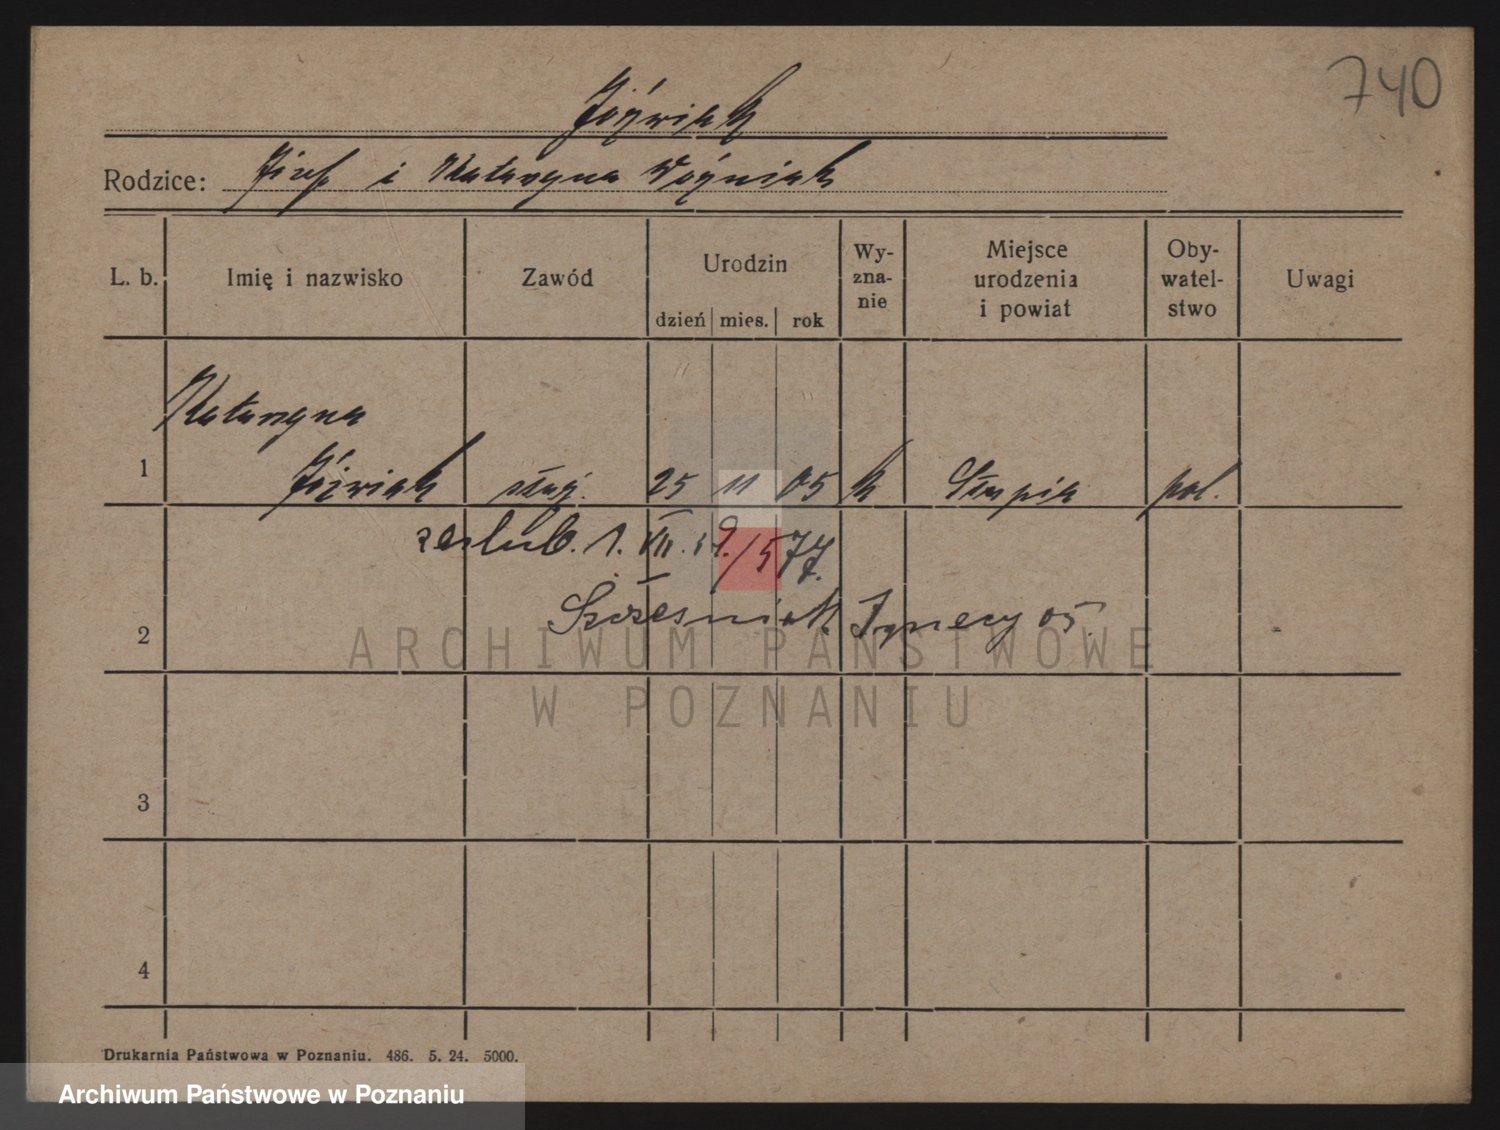 740
Jóźwiak
Rodzice: Józef i Katarzyna Woźniak
L. b. Imię i nazwisko Zawód Urodzin dzień mies. rok Wy-zna-nie Miejsce urodzenia i powiat Oby-watel-stwo Uwagi
Katarzyna
1 Jóźwiak służ. 25 11 05 k Słupia pol.
zaślub. 1. VII. 29./577.
2 Szcześniak Ignacy 05.
ARCHIWUM PAŃSTWOWE
W POZNANIU
3
4
Drukarnia Państwowa w Poznaniu. 486. 5. 24. 5000.
Archiwum Państwowe w Poznaniu